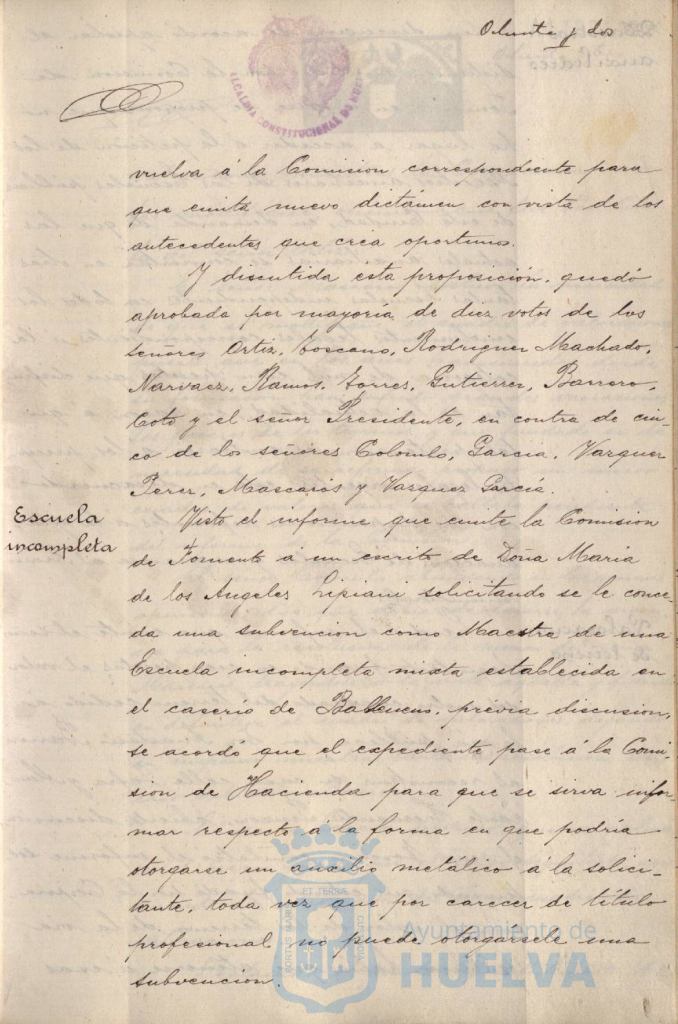 Ochenta y dos
ALCALDIA CONSTITUCIONAL DE
vuelva á la Comision correspondiente para
que emita nuevo dictámen con vista de los
antecedentes que crea oportunos.
Y discutida esta proposición, quedó
aprobada por mayoría de diez votos de los
señores Ortiz, Toscano, Rodriguez Machado,
Narvaez, Ramos, Torres, Gutierrez, Barrero,
Coto y el señor Presidente, en contra de cin-
co de los señores Colombo, Garcia, Vazquez
Perez, Mascarós y Vazquez García.
Escuela
incompleta
Visto el informe que emite la Comision
de Fomento á un escrito de Doña Maria
de los Angeles Lipiani solicitando se le conce-
da una subvencion como Maestra de una
Escuela incompleta mixta establecida en
el caserío de
previa discusion,
se acordó que el expediente pase á la Comi-
sion de Hacienda para que se sirva infor-
mar respecto á la forma en que podría
otorgarse un auxilio metálico á la solici-
tante, toda vez que por carecer de título
profesional no puede otorgarsele una
subvencion.
PORTUS MARIS ET TERRÆ CUSTODIA
Ayuntamiento de
HUELVA